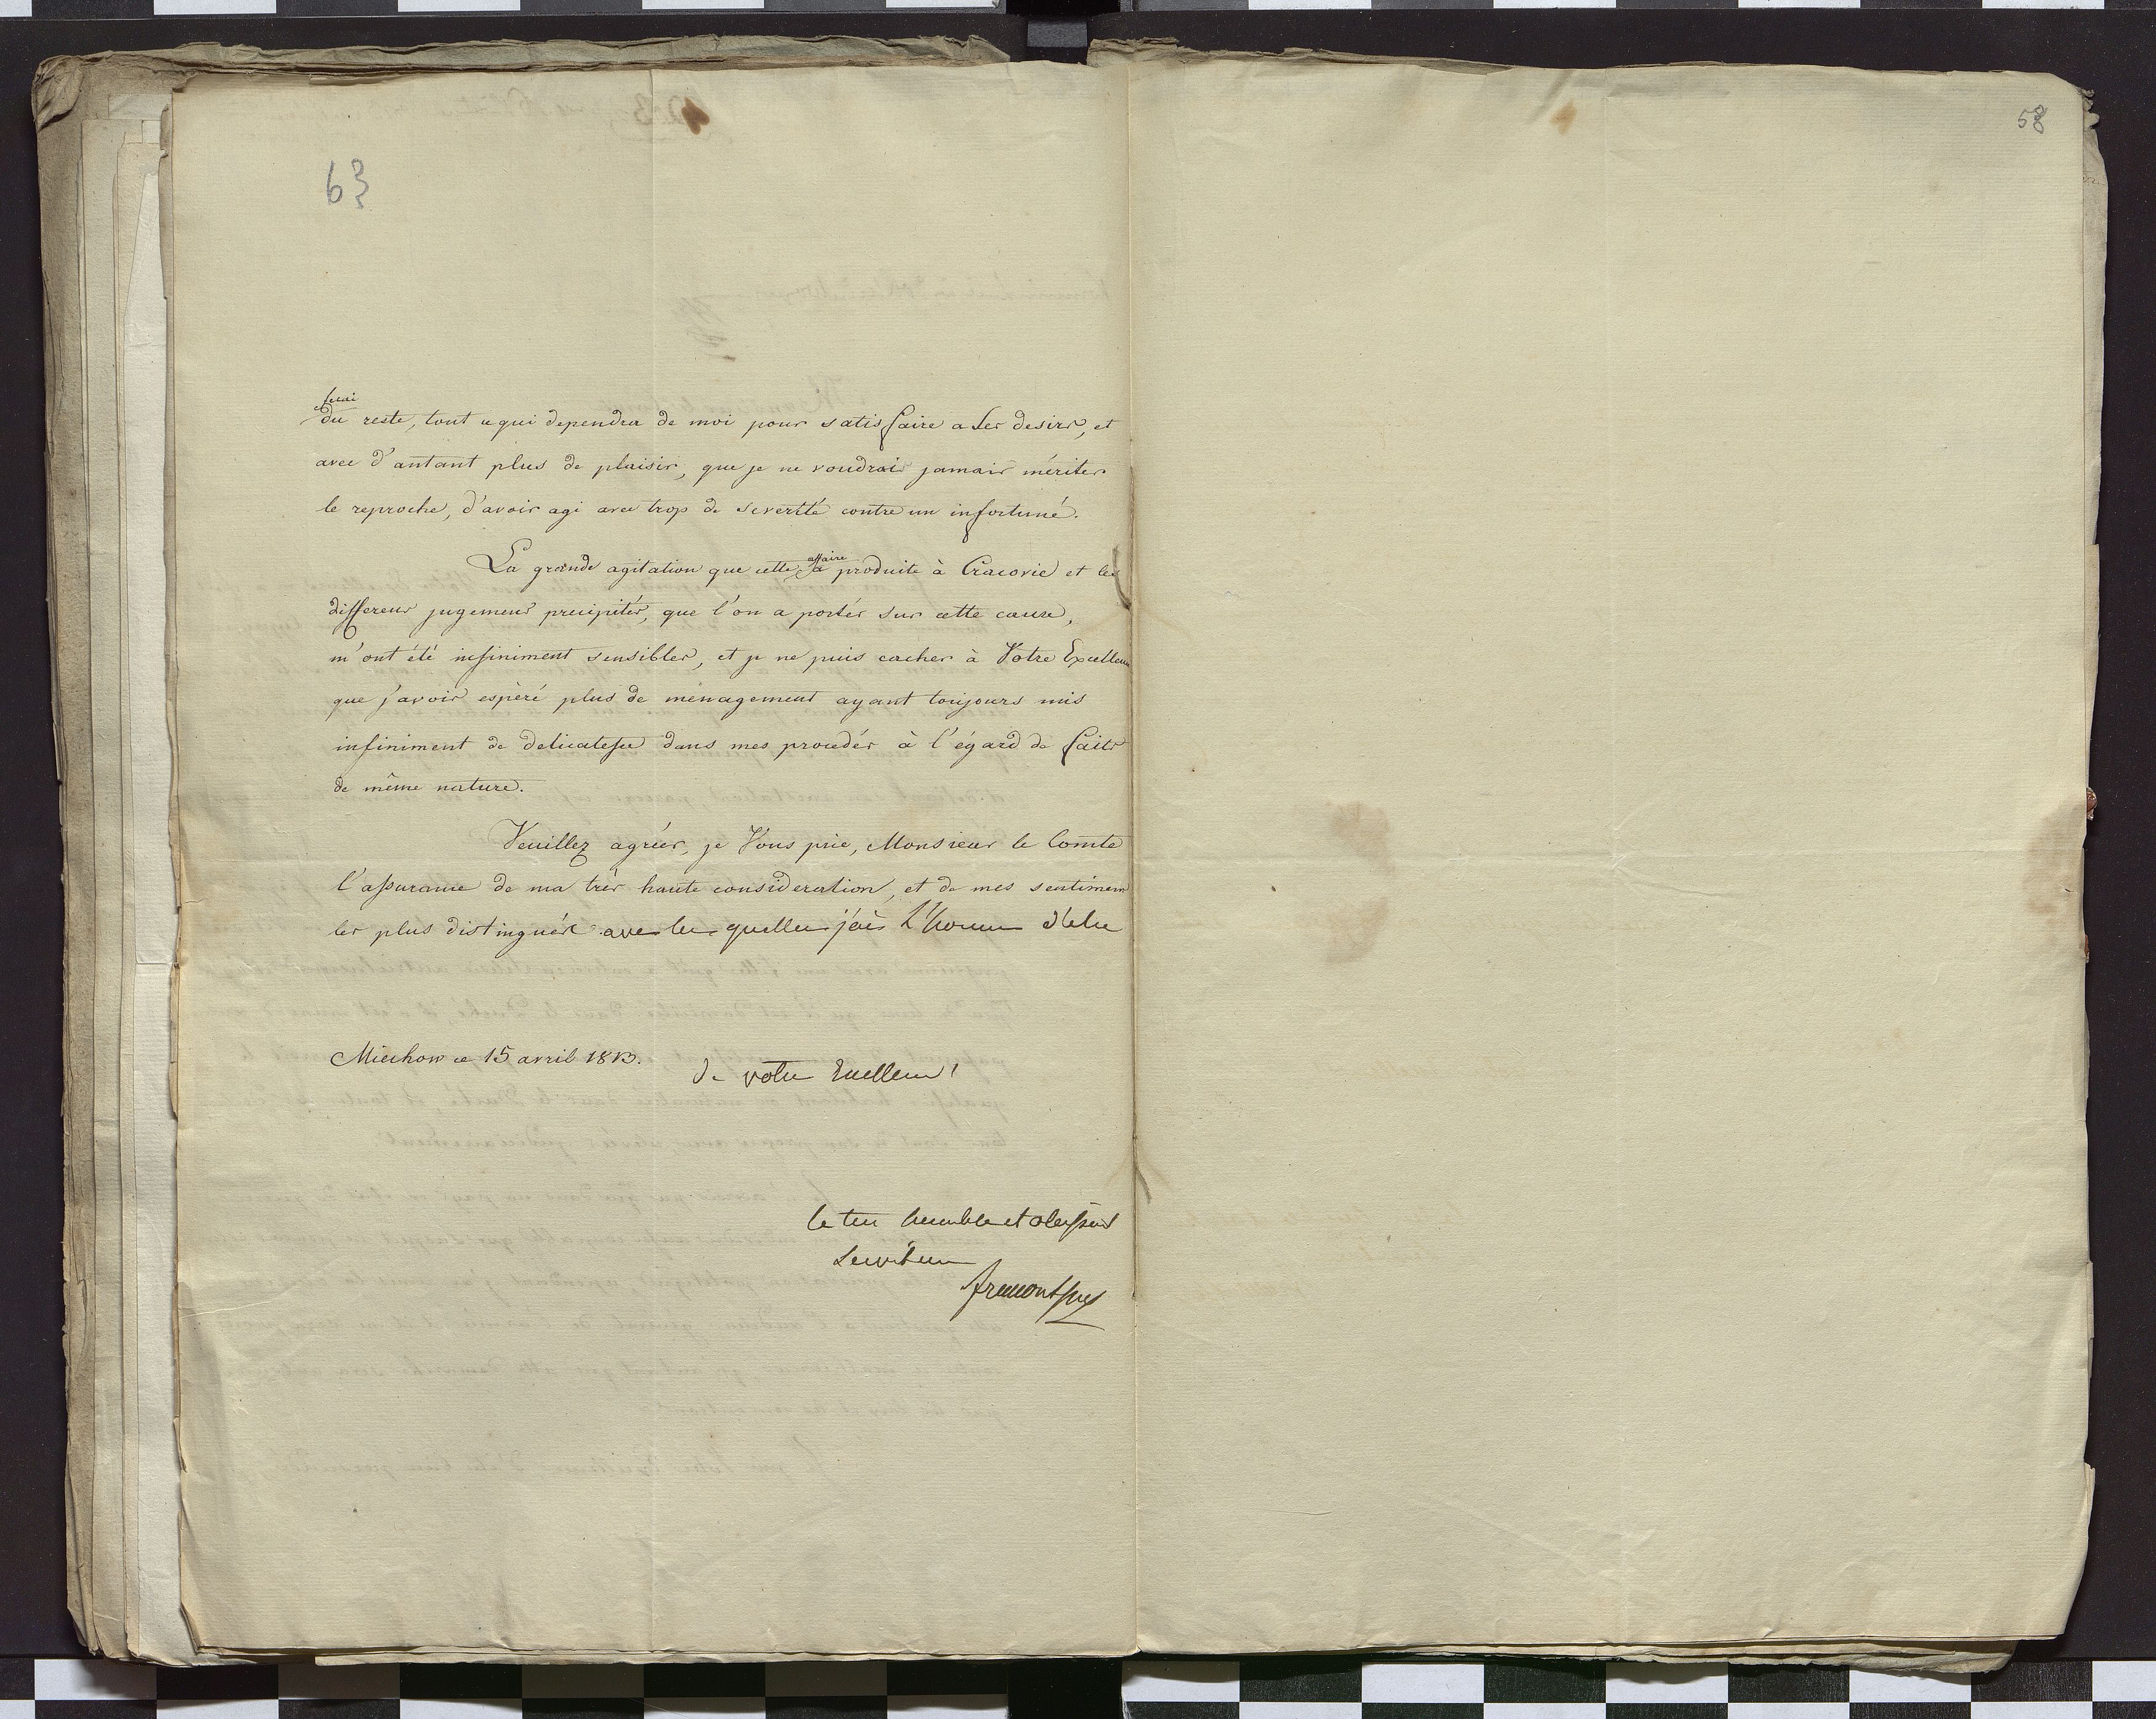 63
58
ferai
du reste, tout ce qui dependra de moi pour satisfaire a Ses desirs, et
avec d'autant plus de plaisir, que je ne voudrais jamais mériter
le reproche, d'avoir agi avec trop de severité contre un infortuné.
affaire
La grande agitation que cette a produite à Cracovie et les
differens jugemens precipités, que l'on a portés sur cette cause,
m'ont été infiniment sensibles, et je ne puis cacher à Votre Excellence
que j'avois espéré plus de ménagement ayant toujours mis
infiniment de delicatesse dans mes procedés à l'égard de faits
de même nature.
Veuillez agréer, je Vous prie, Monsieur le Comte
l'assurance de ma très haute consideration, et de mes sentimens
les plus distingués avec les quelles j'ai L'honneur d'etre
Miechow ce 15 avril 1813.
de votre Excellence
le tres humble et obeissant
Serviteur